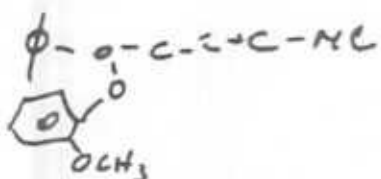 ϕ-C-C-C-C-NC
O
OCH₃